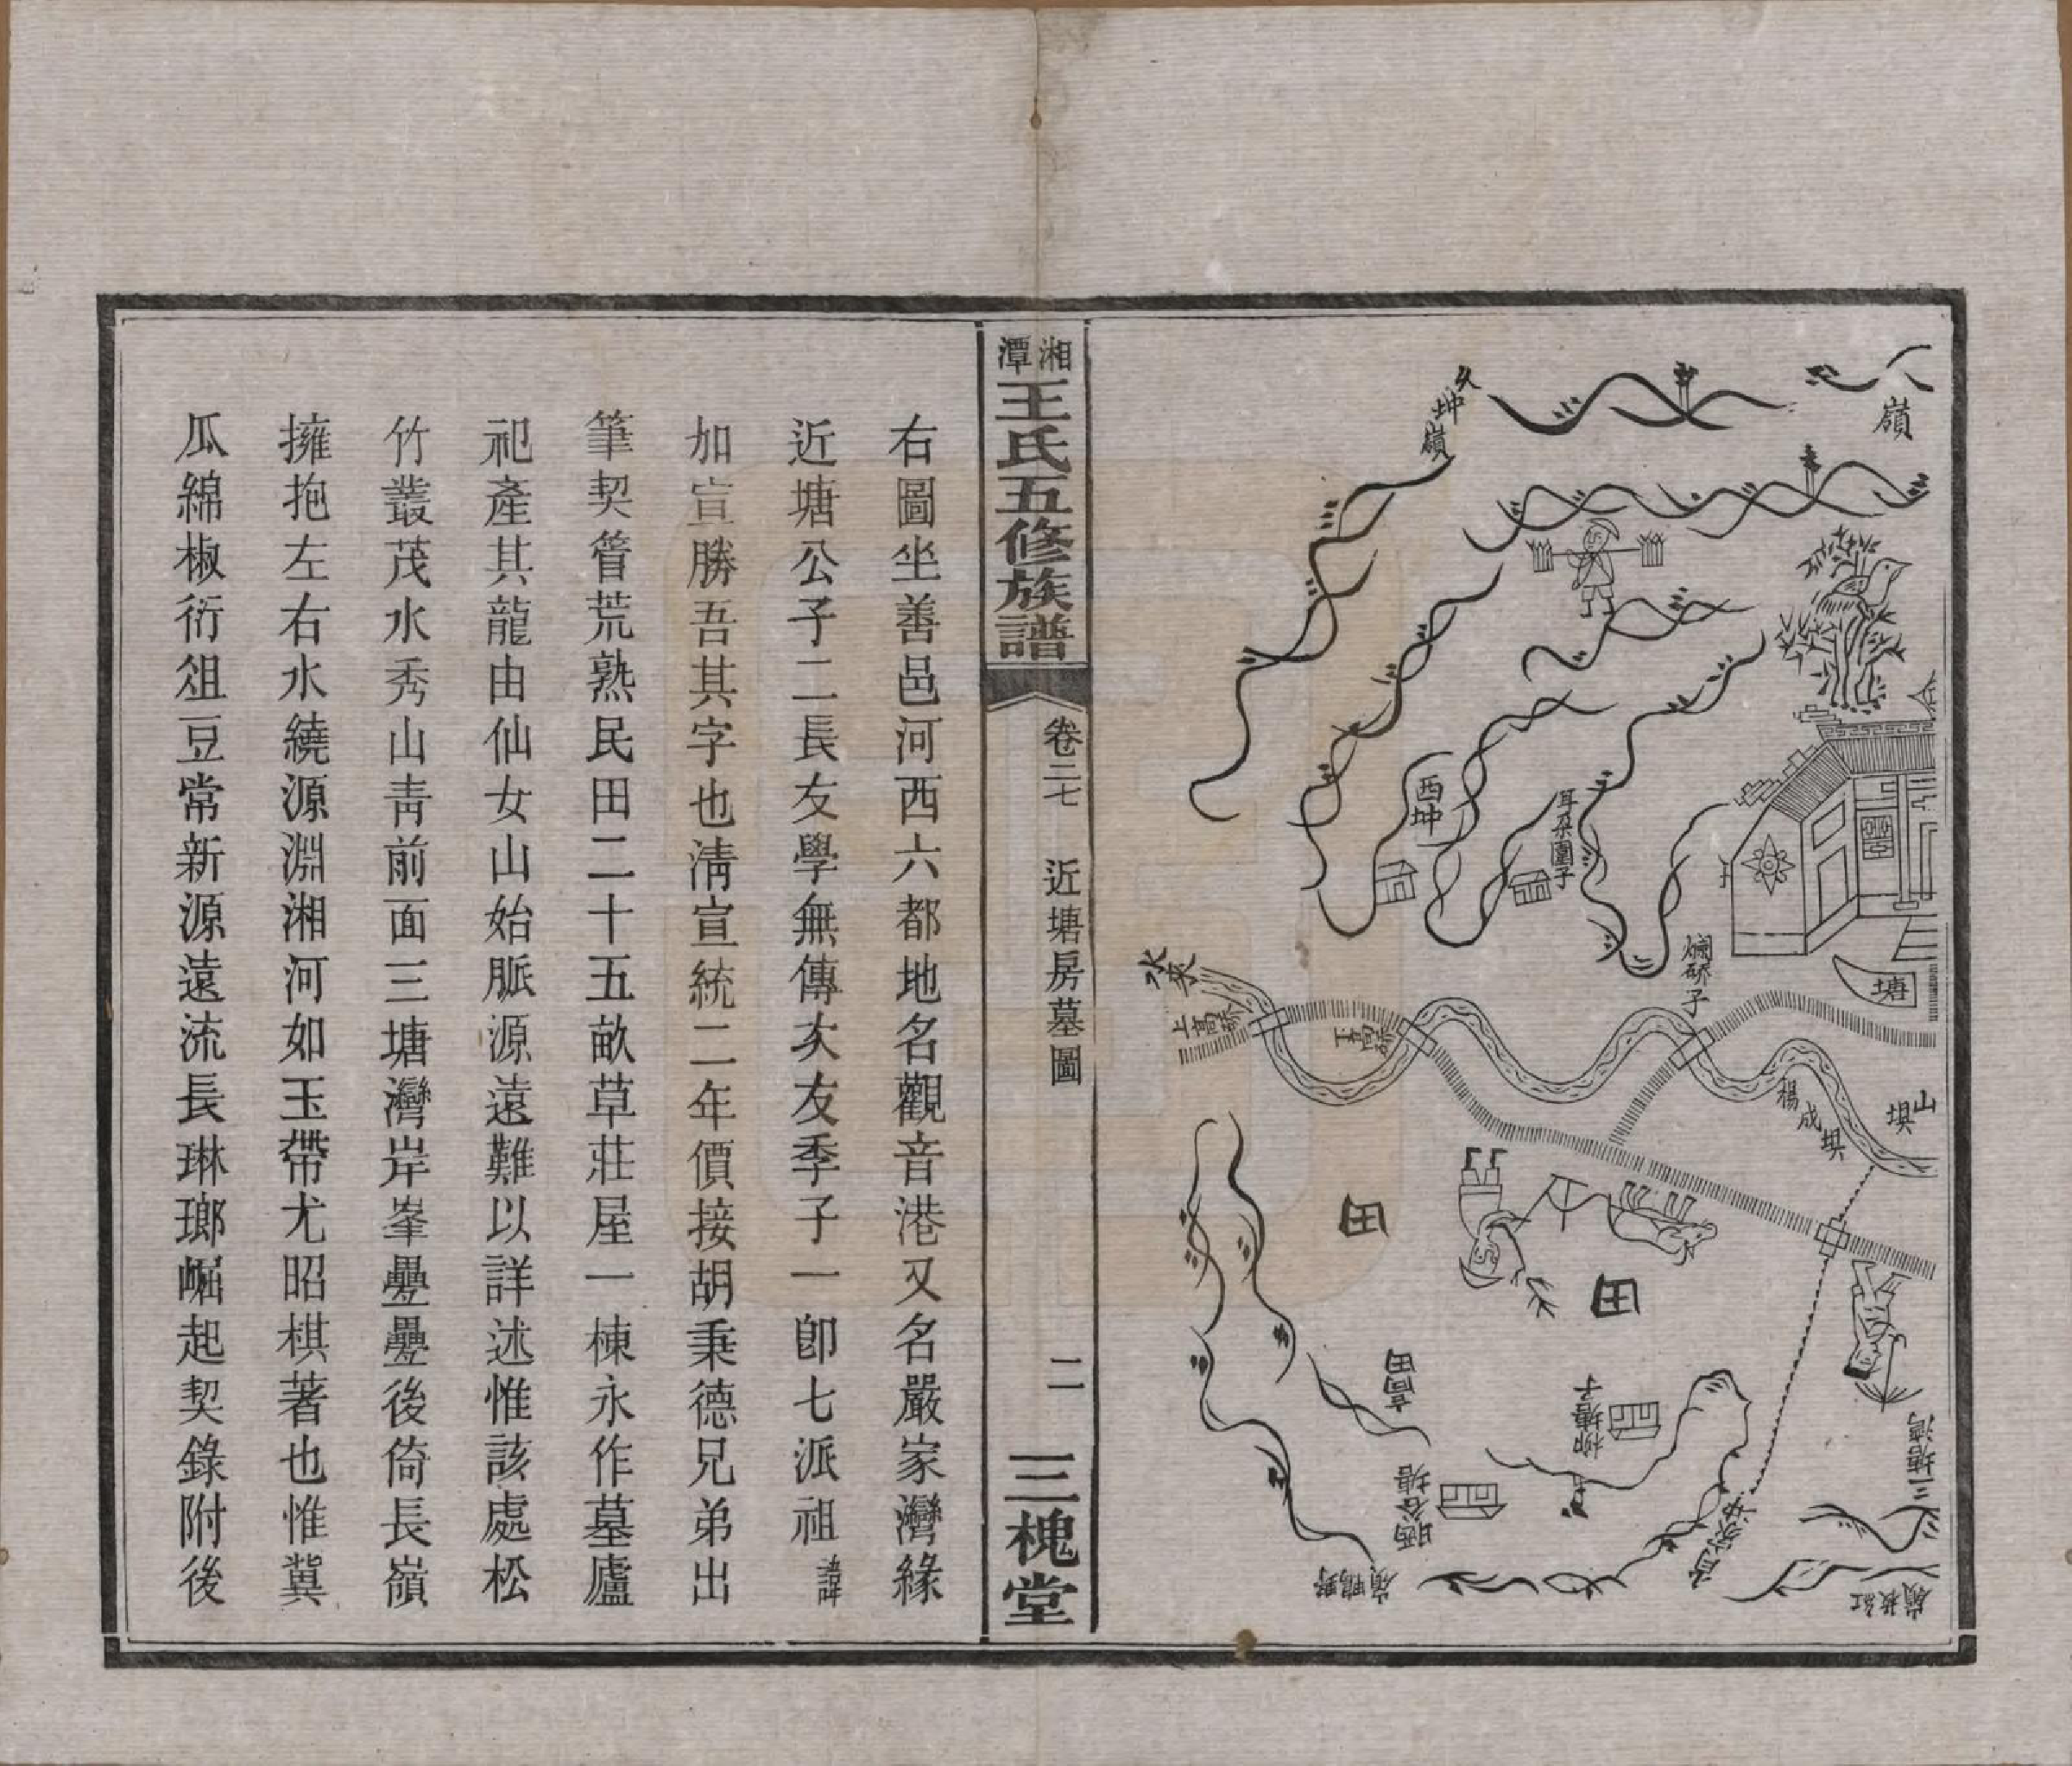 嶺
久坤嶺
西坤
耳朶圍子
塘
水來
上高橋
下高橋
楊成垻
山垻
田
田
高田
柳塘子
晒谷塘
野鴨嶺
三塘灣
湘潭王氏五修族譜
卷二七
近塘房墓圖
二
三槐堂
右圖坐善邑河西六都地名觀音港又名嚴家灣緣
近塘公子二長友學無傳次友季子一卽七派祖諱
加宣勝吾其字也淸宣統二年價接胡秉德兄弟出
筆契管荒熟民田二十五畝草莊屋一棟永作墓廬
祀產其龍由仙女山始脈源遠難以詳述惟該處松
竹叢茂水秀山靑前面三塘灣岸峯疊疊後倚長嶺
擁抱左右水繞源淵湘河如玉帶尤昭棋著也惟冀
瓜綿椒衍俎豆常新源遠流長琳瑯崛起契錄附後